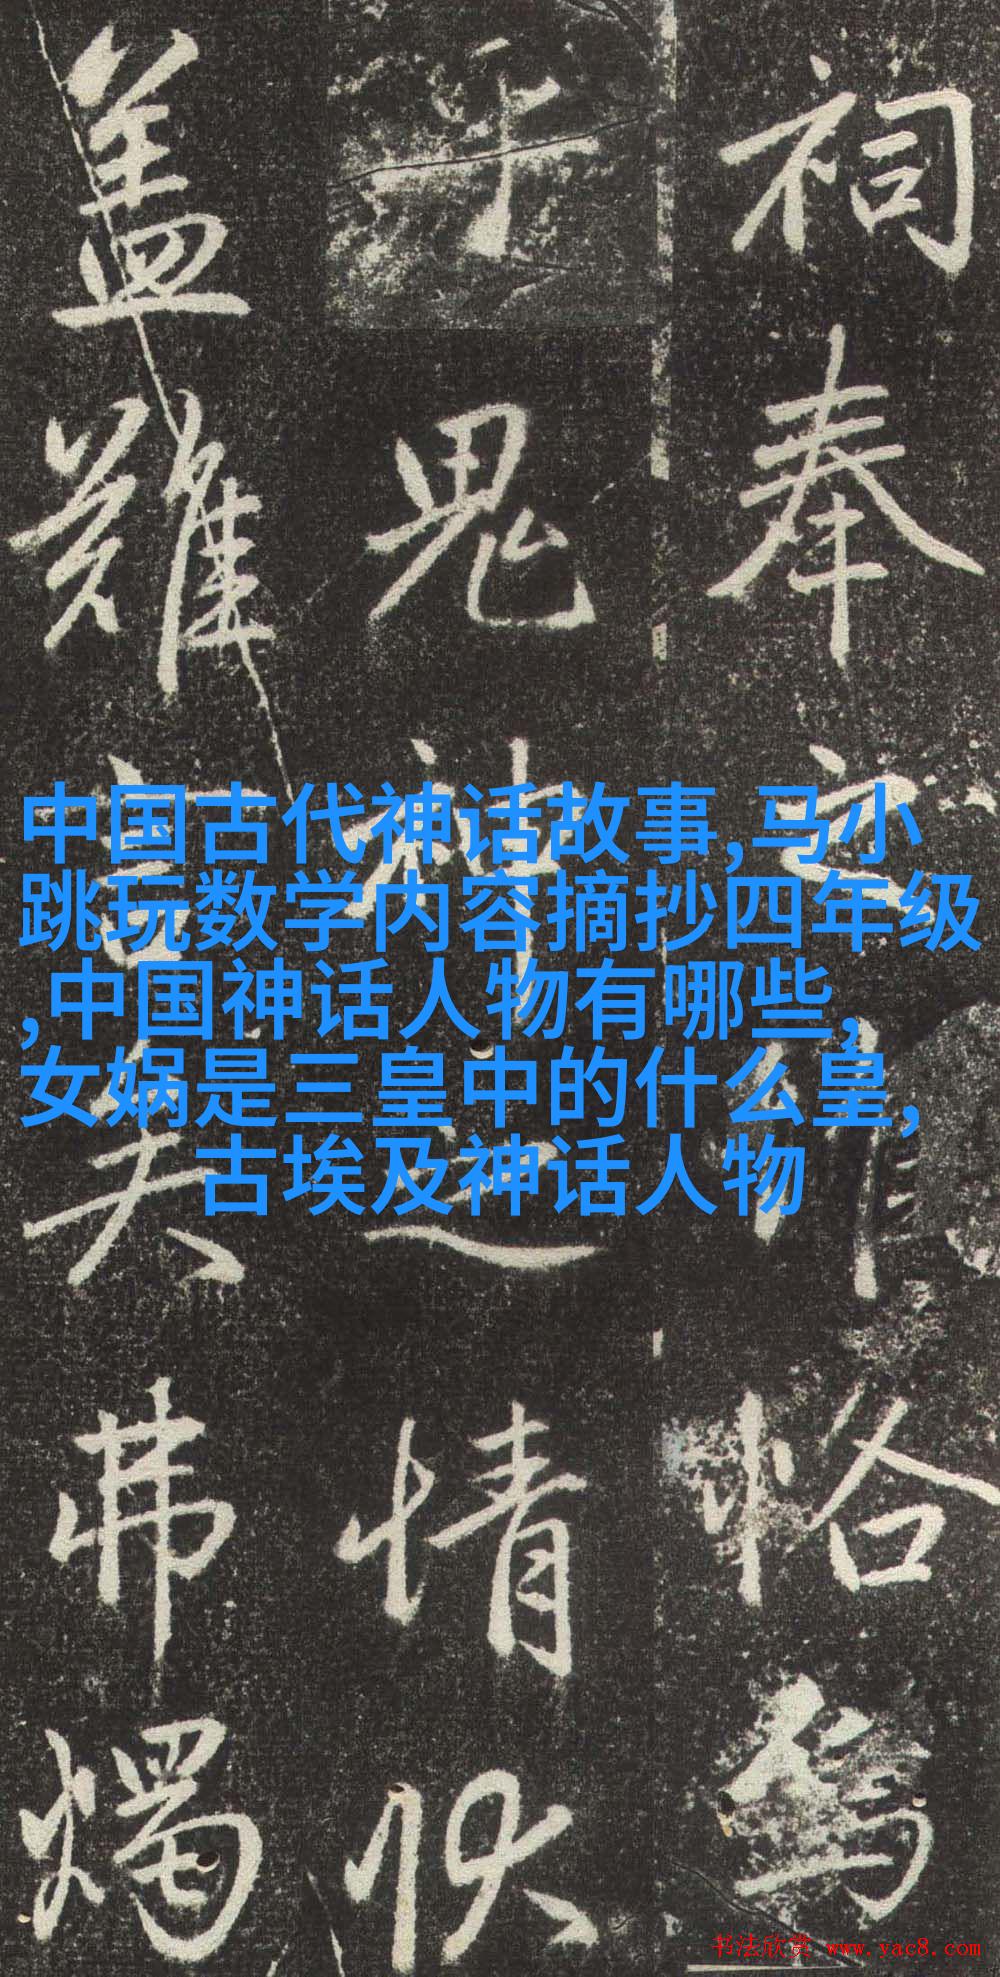 祠奉
于鬼神之情状
盖難言矣
弗燭
中国古代神话故事,马小
跳玩数学内容摘抄四年级
,中国神话人物有哪些,
女娲是三皇中的什么皇,
古埃及神话人物
书法欣赏 www.yac8.com